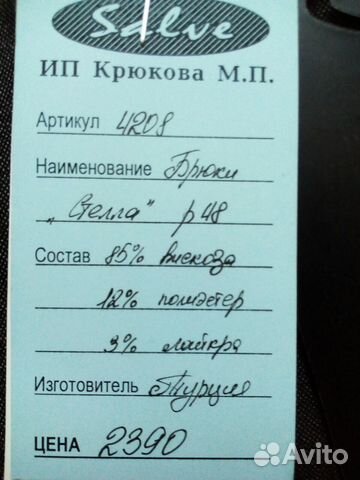 Salve
ИП Крюкова М.П.
Артикул 4208
Наименование Брюки
„Стелла" р48
Состав 85% вискоза
12% полиэстер
3% лайкра
Изготовитель Турция
ЦЕНА 2390
Avito